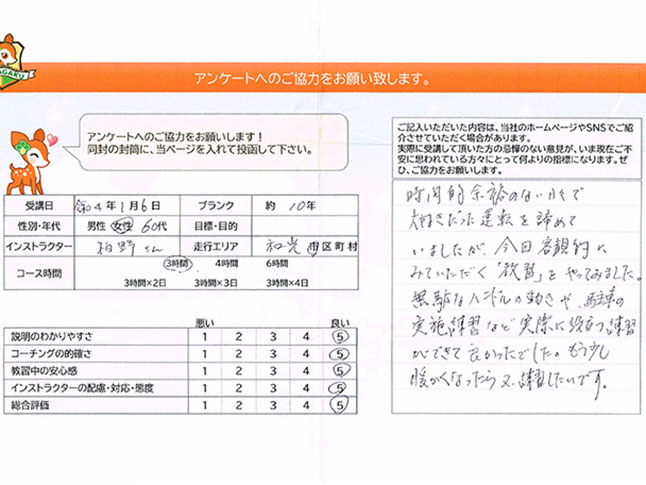 AGAKU
アンケートへのご協力をお願い致します。
アンケートへのご協力をお願いします！
同封の封筒に、当ページを入れて投函して下さい。
受講日 令和4年1月6日 ブランク 約 10年
性別・年代 男性 女性 60代 目標・目的
インストラクター 柏野さん 走行エリア 和光 市区町村
コース時間 3時間 4時間 6時間
3時間×2日 3時間×3日 3時間×4日
悪い 良い
説明のわかりやすさ 1 2 3 4 5
コーチングの的確さ 1 2 3 4 5
教習中の安心感 1 2 3 4 5
インストラクターの配慮・対応・態度 1 2 3 4 5
総合評価 1 2 3 4 5
ご記入いただいた内容は、当社のホームページやSNSでご紹
介させていただく場合があります。
実際に受講して頂いた方の忌憚のない意見が、いま現在ご不
安に思われている方々にとって何よりの指標になります。ぜ
ひ、ご協力をお願いします。
時間的余裕のない中で
大好きだった運転を諦めて
いましたが、今回客観的に
みていただく「教習」をやってみました。
無駄なハンドルの動きや、駐車の
実施練習など実際に役立つ練習
ができて良かったでした。もう少し
暖かくなったら又、練習したいです。